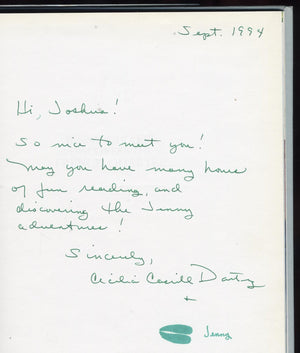 Sept. 1994
Hi, Joshua!
So nice to meet you!
May you have many hours
of fun reading, and
discovering the Jenny
adventures!
Sincerely,
+
Jenny